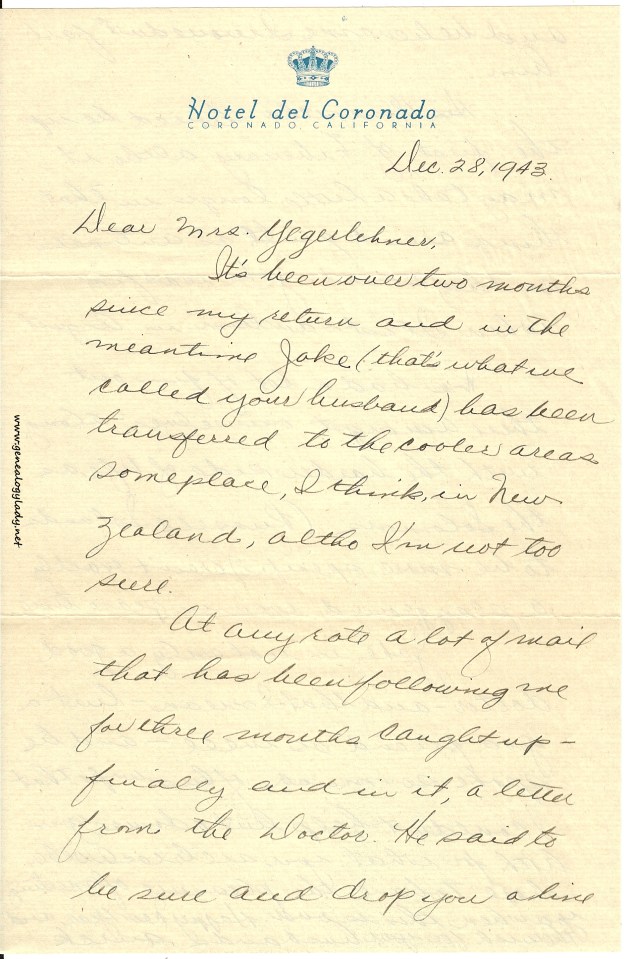 Hotel del Coronado
CORONADO, CALIFORNIA
Dec. 28, 1943.
Dear Mrs. Yegerlehner,
It's been over two months
since my return and in the
meantime Jake (that's what we
called your husband) has been
transferred to the cooler areas
someplace, I think, in New
Zealand, altho I'm not too
sure.
At any rate a lot of mail
that has been following me
for three months caught up -
finally and in it, a letter
from the Doctor. He said to
be sure and drop you a line
www.genealogylady.net